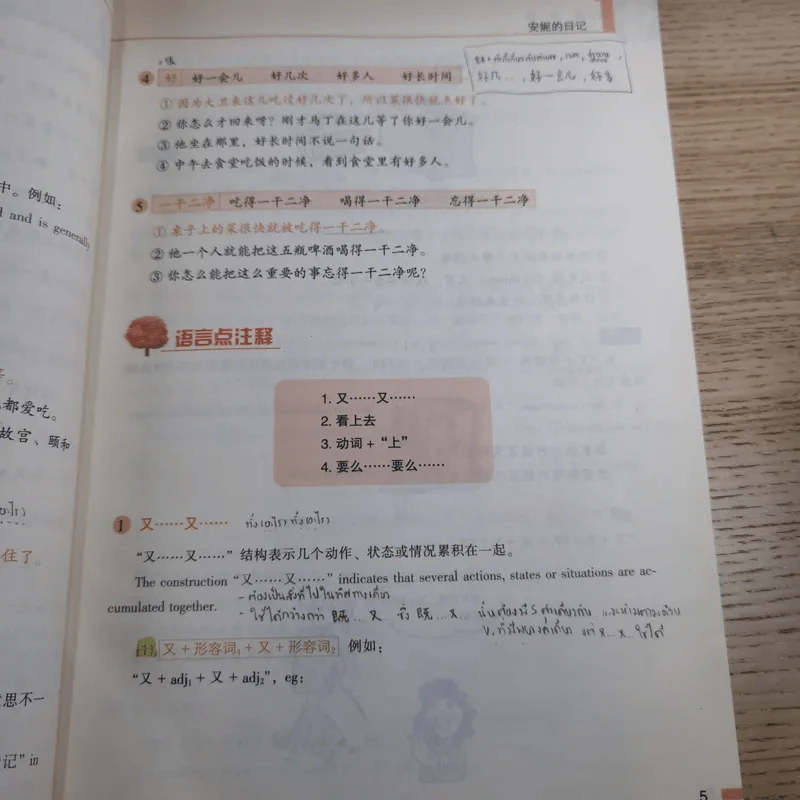 安妮的日记
4 好 好一会儿 好几次 好多人 好长时间
好几..., 好一会儿, 好多
① 因为大卫来这儿吃过好几次了,所以菜很快就点好了。
② 你怎么才回来呀?刚才马丁在这儿等了你好一会儿。
③ 他坐在那里,好长时间不说一句话。
④ 中午去食堂吃饭的时候,看到食堂里有好多人。
5 一干二净 吃得一干二净 喝得一干二净 忘得一干二净
① 桌子上的菜很快就被吃得一干二净。
② 他一个人就能把这五瓶啤酒喝得一干二净。
③ 你怎么能把这么重要的事忘得一干二净呢?
语言点注释
1. 又……又……
2. 看上去
3. 动词 + “上”
4. 要么……要么……
1 又……又……
“又……又……” 结构表示几个动作、状态或情况累积在一起。
The construction “又……又……” indicates that several actions, states or situations are ac-
cumulated together.
- ต้องเป็นสิ่งที่ไปในทิศทางเดียว
- ใช้ได้กว้างกว่า 既...又
(1) 又 + 形容词1 + 又 + 形容词2 例如:
“又 + adj1 + 又 + adj2”, eg:
5
中。例如:
d and is generally
都爱吃。
故宫、颐和
住了。
意思不一
记” in